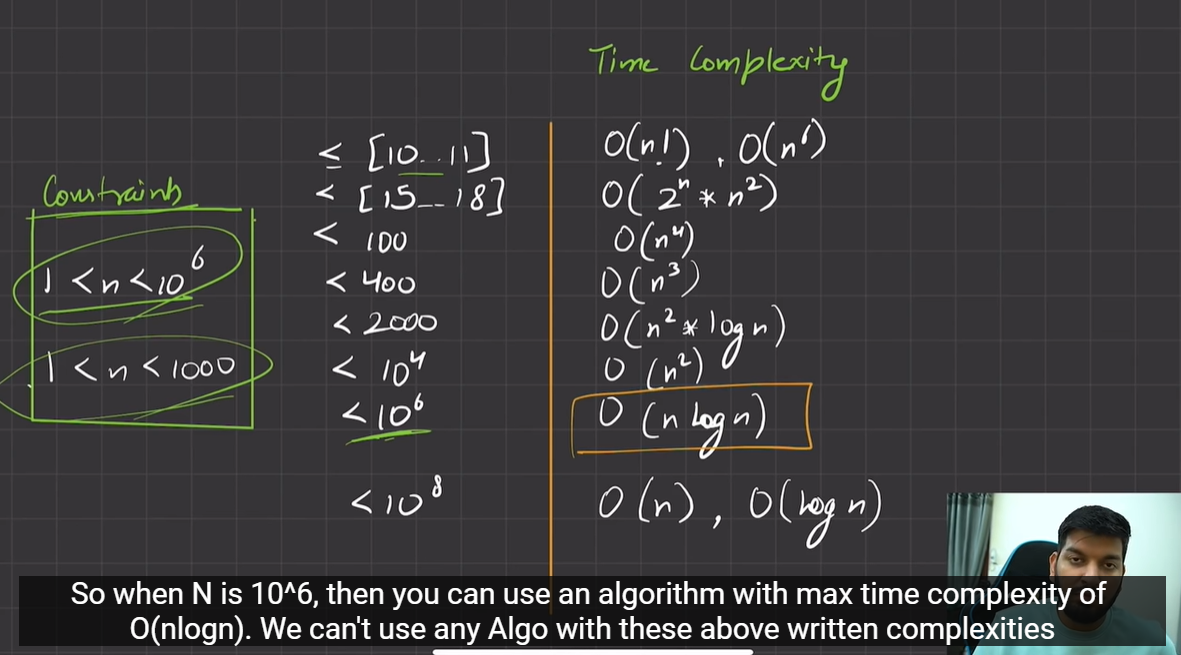 Time Complexity
≤ [10...11] O(n!), O(n⁶)
< [15---18] O(2ⁿ * n²)
Constraints
< 100 O(n⁴)
1 < n < 10⁶
< 400 O(n³)
< 2000 O(n² * log n)
1 < n < 1000
< 10⁴ O(n²)
< 10⁶ O(n log n)
< 10⁸ O(n), O(log n)
So when N is 10^6, then you can use an algorithm with max time complexity of
O(nlogn). We can't use any Algo with these above written complexities